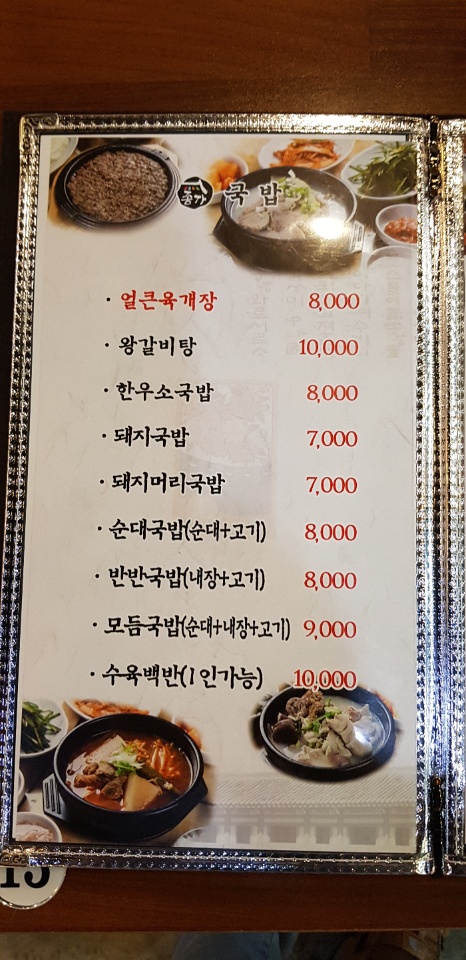 종가 국밥
· 얼큰육개장 8,000
· 왕갈비탕 10,000
· 한우소국밥 8,000
· 돼지국밥 7,000
· 돼지머리국밥 7,000
· 순대국밥(순대+고기) 8,000
· 반반국밥(내장+고기) 8,000
· 모듬국밥(순대+내장+고기) 9,000
· 수육백반(1인가능) 10,000
15